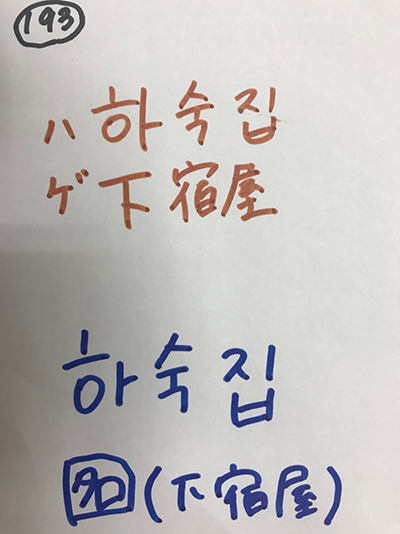 193
ハ 하숙집
ゲ 下宿屋
하숙집
名 (下宿屋)